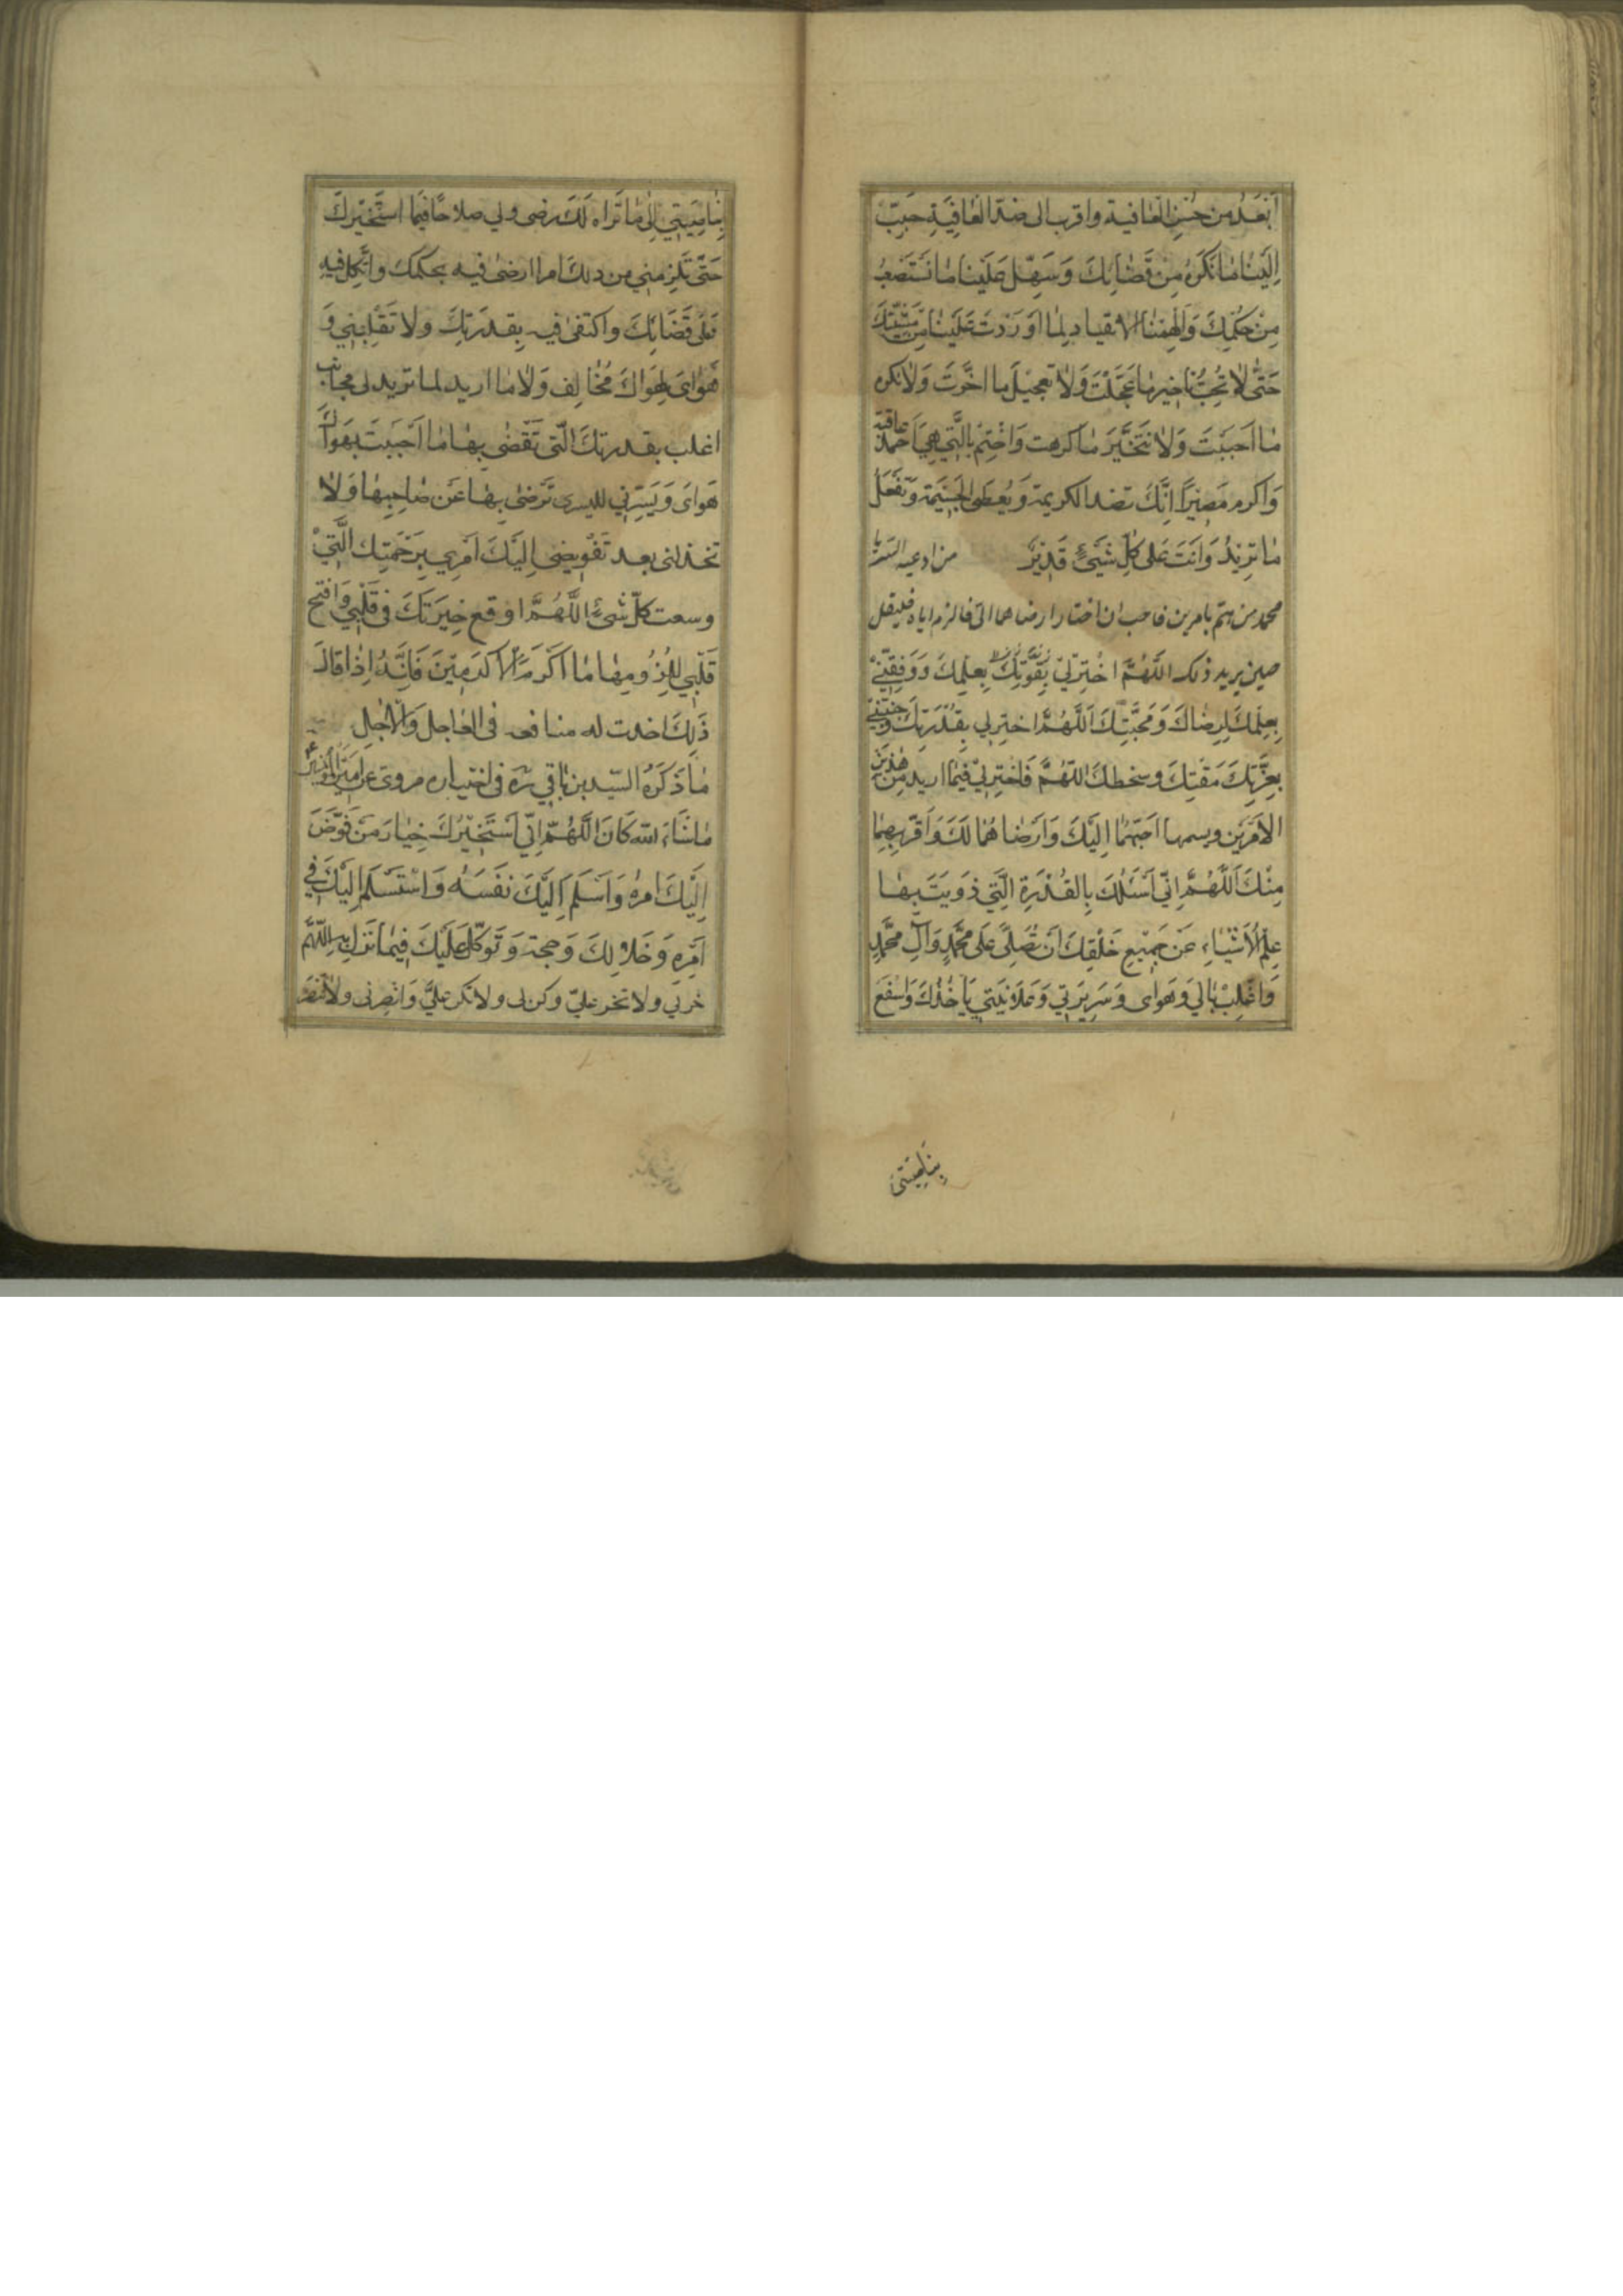 اَبْعَدُ من حُسْنِ العٰافية واقرب الى ضدّ العٰافِيَةِ حَبِّبْ
اِلَيْنٰا مٰا نَكْرَهُ مِنْ قَضٰائِكَ وَسَهِّل عَلَيْنٰا مٰا نَسْتَصْعِبُ
مِنْ حُكْمِكَ وَاَلْهِمْنٰا الانقياد لِمٰا اَوْرَدْتَ عَلَيْنٰا مِنْ مَشِيَّتِكَ
حَتّٰى لٰا نُحِبَّ تٰاخير مٰا عَجَّلْتَ وَلٰا تعجيلَ ما اخَّرتَ وَلٰا نكره
مٰا اَحبَبْتَ وَلٰا نَتَخَيَّرَ مٰا كرهت وَاخْتِمْ بِالَّتي هِيَ اَحْمَدُ عاقبة
وَاكرم مَصِيرًا اِنَّكَ تفيد الكريمة وَتُعطى الجَسِيمَة وَتَفْعَلُ
مٰا تُرِيْدُ وَاَنْتَ عَلىٰ كُلِّ شَيْئٍ قَدِيْرٌ من ادعيه السّر يا
محمد من همّ بامرين فاحب ان اختار ارضاهما الىّ فالزم اياه فليقل
حين يريد ذلك اللّهُمَّ اخْتِرْلِيْ بِعِلْمِكَ وَوَفِّقْنِيْ
بِعِلْمِكَ لِرِضٰاكَ وَمَحَبَّتِكَ اَللّٰهُمَّ اختِرلي بِقُدْرَتِكَ وَجَنِّبْنِي
بِعِزَّتِكَ مَقْتِكَ وسخطك اللّهُمَّ فَاخْتِرلِيْ فيمٰا اريد مِنْ هٰذَيْنِ
الاَمْرَيْن ويسمهما اَحَبّهُمٰا اِلَيْكَ وَاَرْضٰاهُمٰا لَكَ وَاَقْرَبهِمٰا
مِنْكَ اَللّٰهُمَّ اِنّي اَسْئَلُكَ بِالقُدْرَةِ الَّتي زَوَيْتَ بِهٰا
عِلْمَ الْاَشْيٰاءِ عَنْ جَمِيْعِ خَلْقِكَ اَنْ تُصَلِّيَ عَلىٰ مُحَمَّدٍ وَآلِ مُحَمَّدٍ
وَاغْلِبْ بٰالي وَهَوٰاى وَسَرِيرَتي وَعَلٰانِيَتي بِاَخْذِكَ وَاسْفَعْ
بِنٰاصِيَتي
بِنٰاصِيَتي اِلىٰ مٰا تَرٰاه لَكَ رضى ولي صلاحًا فيمٰا استَخيرك
حَتّٰى تُلْزِمَني من ذلِكَ امرا ارضى فيه بحكمك واتَّكِل فيهِ
عَلىٰ قَضٰائِكَ واكتفى فيه بِقدْرَتِكَ ولا تَقْلِبْني وَ
هَوٰايَ لِهَوٰاكَ مُخٰالِف وَلٰا مٰا اريد لمٰا تريد لى مجانب
اغلب بقدرتك الّتى تَقْضى بِهٰا مٰا اَحْبَبْتَ بِهَوٰاكَ
هَوٰاىَ وَيَسِّرْني لليسرى تَرْضىٰ بِهٰا عَنْ صٰاحِبِهٰا وَلٰا
تخذلنى بعد تَفْوِيضى اِلَيْكَ اَمْرِي بِرَحْمَتِكَ الَّتِيْ
وسعت كلّ شئٍ اللّٰهُمَّ اوقع خِيَرَتَكَ في قَلْبي وَافتح
قَلْبي لِلُزُومِهٰا يٰا اَكْرَمَ الْاَكْرَمِيْنَ فَاِنَّهُ اِذٰا قٰالَ
ذٰلِكَ اخترت له منٰافعه فى العٰاجل وَالآجل
مٰا ذَكَرَهُ السّيّد بن بٰاقي ره في اختيٰاره مروى عن اميرالمؤمنين
مٰا شٰاءَ اللّه كٰانَ اللّهُمَّ اِنّي اَسْتَخيْرُكَ خِيٰارَ مَنْ فَوَّضَ
اِلَيْكَ امرهُ وَاَسْلَمَ اِلَيْكَ نَفْسَهُ وَاسْتَسْلَمَ اِلَيْكَ في
اَمْرِهِ وَخَلٰا لَكَ وجهه وَتَوَكَّلَ عَلَيْكَ فيمٰا نَزَلَ بِهِ اللّهُمَّ
خرلي ولا تخر عليّ وكن لى ولا تكن عليَّ وَانْصرنى ولا تنصر